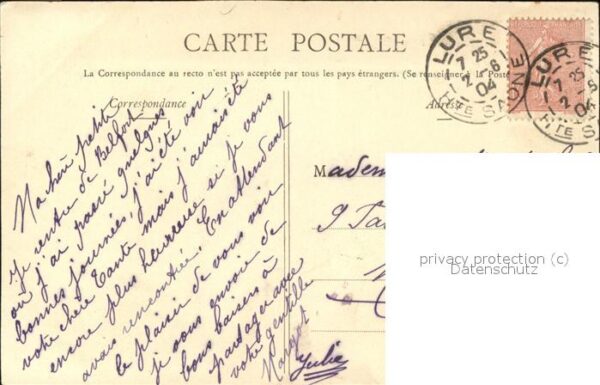 CARTE POSTALE
La Correspondance au recto n'est pas acceptée par tous les pays étrangers. (Se renseigner à la Poste
Correspondance
Adresse
Ma chère petite
Je rentre de Belfort
où j'ai passé quelques
bonnes journées, j'ai été voir
votre chère Tante mais j'aurais été
encore plus heureuse si je vous
avais rencontrée. En attendant
le plaisir de vous voir
je vous envoie de
bons baisers à
partager avec
votre gentille
Margot.
Julie
LURE
7 25
2 -6
04
HTE SAONE
LURE
7 25
2 -6
04
HTE SAONE
Madem
9
privacy protection (c)
Datenschutz